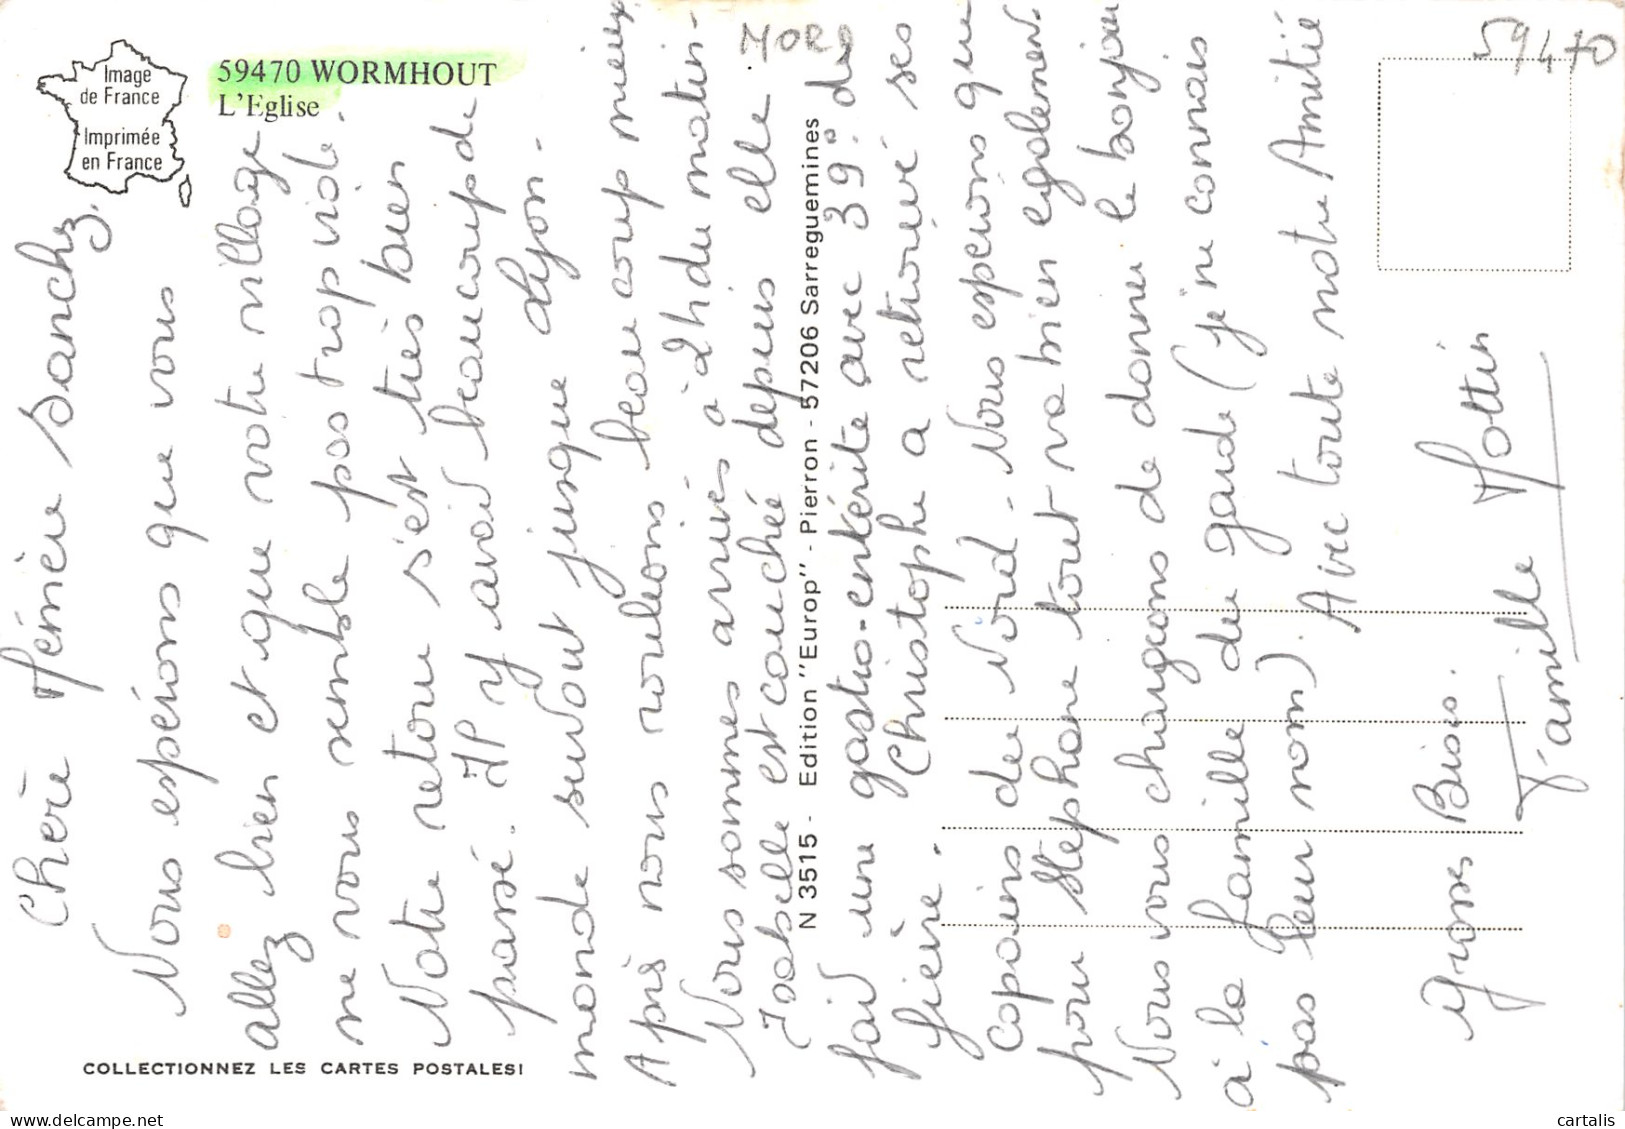 Image
de France
Imprimée
en France
59470 WORMHOUT
L'Eglise
NORD
59470
Chère Mémère Sanchz,
Nous espérons que vous
allez bien et que votre village
ne vous semble pas trop vide.
Notre retour s'est très bien
passé. IP y avait beaucoup de
monde surtout jusque Lyon.
Après nous roulions beaucoup mieux
Nous sommes arrivés à 2h du matin -
Isabelle est couchée depuis elle
fait une gastro-entérite avec 39° de
fièvre. Christophe a retrouvé ses
copains du Nord - Nous espérons que
pour Stéphane tout va bien également.
Nous vous chargeons de donner le bonjour
à la famille du garde (je ne connais
pas leur nom). Avec toute notre Amitié
Grosses Bises.
Famille Mottin
N 3515 - Edition "Europ" - Pierron - 57206 Sarreguemines
COLLECTIONNEZ LES CARTES POSTALES!
cartalis